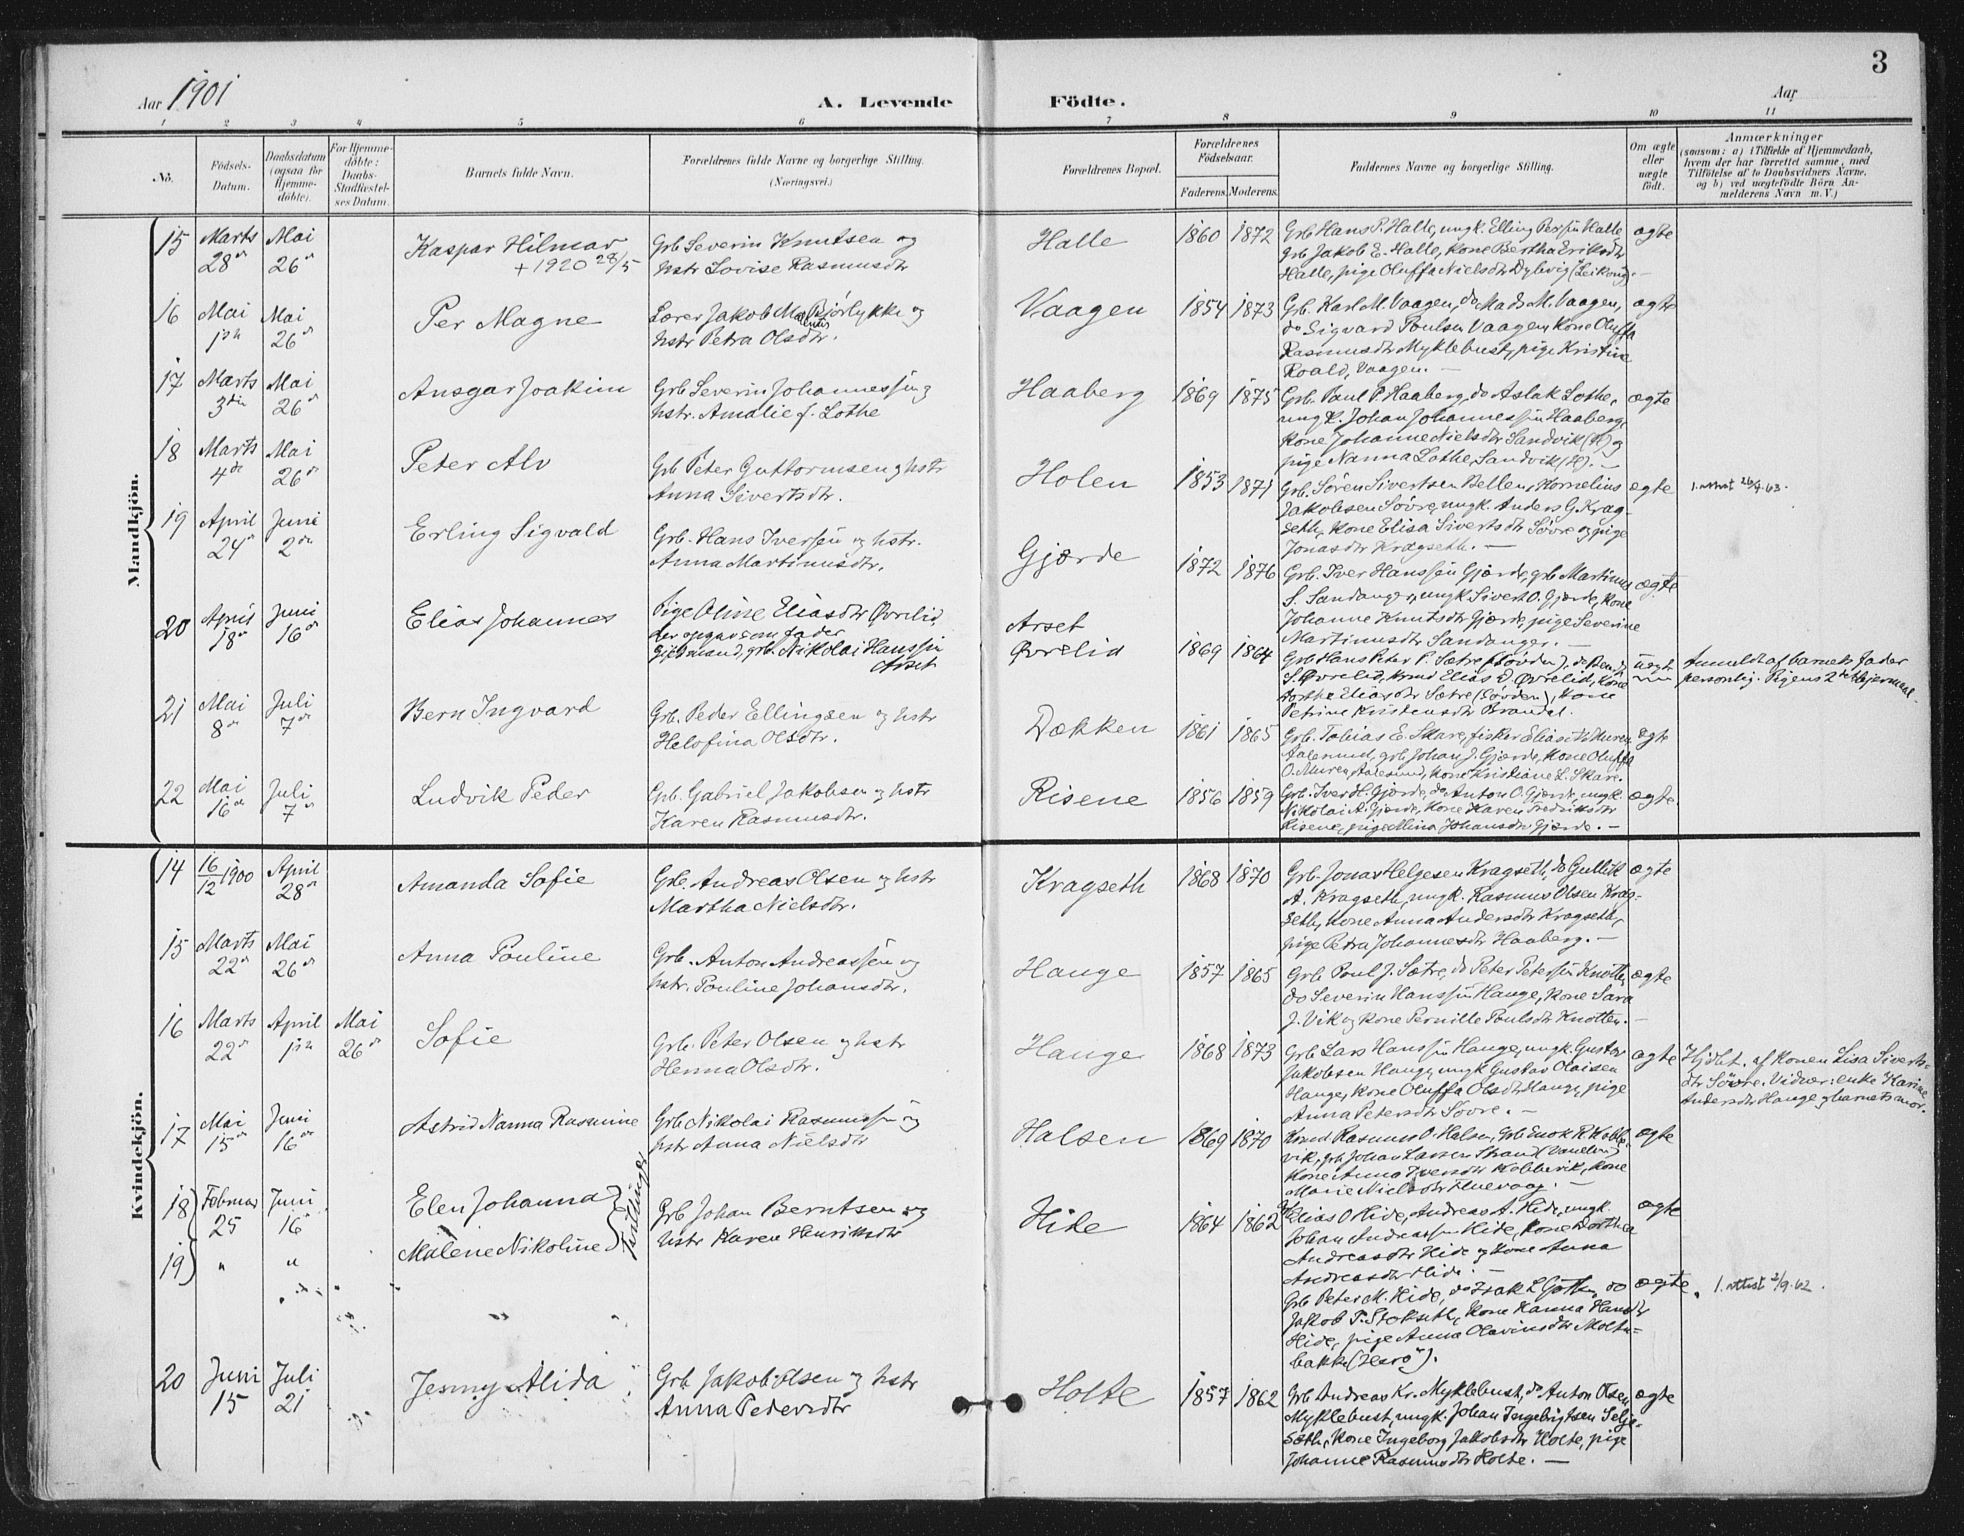 3
Aar 1901
A. Levende Födte.
Aar
1 2 3 4 5 6 7 8 9 10 11
No.
Födsels-Datum.
Daabsdatum (ogsaa for Hjemme-döbte).
For Hjemme-döbte: Daabs-Stadfæstel-ses Datum.
Barnets fulde Navn.
Forældrenes fulde Navne og borgerlige Stilling.
(Næringsvei.)
Forældrenes Bopæl.
Forældrenes Födselsaar.
Faderens. Moderens.
Faddernes Navne og borgerlige Stilling.
Om ægte eller uægte födt.
Anmærkninger
(saasom: a) i Tilfælde af Hjemmedaab,
hvem der har forrettet samme, med
Tilföielse af to Daabsvidners Navne,
og b) ved uægtefödte Börn An-
melderens Navn m. V.)
Mandkjön.
15 Marts 28de Mai 26de Kaspar Hilmar + 1920 28/5
Grb Severin Knutsen og
hstr Lovise Rasmusdtr
Halle 1860 1872
Grb Hans P. Halle, ungk. Elling Persen Halle
grb Jakob E. Halle, kone Bertha Eriksdtr
Halle, pige Oluffa Nielsdtr Dybvig (Leikong).
ægte
16 Mai 1ste Mai 26de Per Magne
Lærer Jakob Bjørlykke og
hstr Petra Olsdtr.
Vaagen 1854 1873
Grb. Karl M. Vaagen, do Mads M. Vaagen,
do Sigvard Poulsen Vaagen, kone Oluffa
Rasmusdtr Myklebust, pige Kristine
Roald, Vaagen. —
ægte
17 Marts 3die Mai 26de Ansgar Joakim
Grb Severin Johannessen og
hstr. Amalie f. Lothe
Haaberg 1869 1875
Grb. Paul P. Haaberg, do Aslak Lothe,
ungk. Johan Johannessen Haaberg,
kone Johanne Nielsdtr Sandvik (H) og
pige Nanna Lothe, Sandvik (H). —
ægte
18 Marts 4de Mai 26de Peter Alv
Grb Peter Guttormsen og hstr
Anna Sivertsdtr.
Holen 1853 1871
Grb. Søren Sivertsen Bellen, Kornelius
Jakobsen Søvre, ungk. Anders G. Krag-
seth, kone Elisa Sivertsdtr Søvre og pige
Jonasdtr Kragseth. —
ægte
1. attest 26/9.63.
19 April 24de Juni 2den Erling Sigvald
Grb. Hans Iversen og hstr.
Anna Martinusdtr.
Gjærde 1872 1876
Grb. Iver Hanssen Gjærde, grb Martinus
S. Sandanger, ungk Sivert O. Gjærde, kone
Johanne Knutsdtr Gjærde, pige Severine
Martinusdtr Sandanger. —
ægte
20 April 18de Juni 16de Elias Johannes
Pige Oline Eliasdtr Øvrelid
der opgav som fader
gift mand, grb. Nikolai Hanssen
Arset
Arset
Øvrelid 1869 1864
Grb Hans Peter P. Sætre (Søvden),
S. Øvrelid, Knud Elias Øvrelid, kone
Dorthe Eliasdtr Sætre (Søvden), kone
Petrine Kristensdtr Brandal.
uægte
Anmeldt af barnets fader
personlig. Pigens 2det leiermaal.
21 Mai 8de Juli 7de Bern Ingvard
Grb. Peder Ellingsen og hstr
Helofina Olsdtr.
Dækken 1861 1865
Grb. Tobias E. Skare, fisker Elias Muren
Aalesund, grb Johan J. Gjærde, kone Oluffa
O. Muren, Aalesund, kone Kristiane L. Skare.
ægte
22 Mai 16de Juli 7de Ludvik Peder
Grb. Gabriel Jakobsen og hstr
Karen Rasmusdtr.
Risene 1856 1859
Grb. Iver H. Gjærde, do Anton O. Gjærde, ungk.
Nikolai A. Gjærde, kone Karen Fredriksdtr
Risene, pige Alina Johansdtr Gjærde. —
ægte.
Kvindekjön.
14 16/12 1900 April 28de Amanda Sofie
Grb. Andreas Olsen og hstr
Martha Nielsdtr.
Kragseth 1868 1870
Grb. Jonas Helgesen Kragseth, do Gullik
A. Kragseth, ungk. Rasmus Olsen Krag-
seth, kone Anna Andersdtr Kragseth,
pige Petra Johannesdtr Haaberg. —
ægte
15 Marts 22de Mai 26de Anna Pouline
Grb. Anton Andreassen og
hstr. Pouline Johansdtr.
Hauge 1857 1865
Grb Poul J. Sætre, do Peter Petersen Knotten,
do Severin Hanssen Hauge, kone Sara
J. Vik og kone Pernille Poulsdtr Knotten. —
ægte
16 Marts 22de April 1ste Mai 26de Sofie
Grb. Peter Olsen og hstr
Henna Olsdtr.
Hauge 1868 1873
Grb Lars Hanssen Hauge, ungk. Gustav
Jakobsen Hauge, ungk Gustav Olaisen
Hauge, kone Oluffa Olsdtr Hauge, pige
Anna Petersdtr Søvre. —
ægte
Hjdbt. af konen Lisa Siverts-
dtr Søvre. Vidner: enke Karine
Andersdtr Hauge og barnets mor.
17 Mai 15de Juni 16de Astrid Nanna Rasmine
Grb Nikolai Rasmussen og
hstr Anna Nielsdtr
Halsen 1869 1870
Knud Rasmus O. Halsen, Grb Enok R. Kobbe-
vik, grb Johan Larsen Strand (Vanelven)
kone Anna Iversdtr Kobbevik, kone
Marie Nielsdtr Fluevaag. —
ægte
18 Februar 25 Juni 16de Elen Johanna
19 " " Malene Nikoline
tvillinger
Grb Johan Berntsen og
hstr Karen Henriksdtr
Hide 1864 1862
Elias O Hide, Andreas A. Hide, ungk.
Johan Andreassen Hide, kone Dorthea
Andreasdtr Hide og kone Anna
Andreasdtr Hide. —
ægte
Grb Peter M. Hide, do Isak L. do
Jakob P. Stokseth, kone Hanna Hansdtr
Hide, pige Anna Olavinsdtr Molte-
bakke (Herø).
ægte
1. attest 2/9.62.
20 Juni 15 Juli 21 Jenny Alida
Grb Jakob Olsen og hstr
Anna Pedersdtr
Holte 1857 1862
Grb Andreas Kr. Myklebust, do Anton Olsen
Myklebust, ungk. Johan Ingebrigtsen Selje-
sæth, kone Ingeborg Jakobsdtr Holte, pige
Johanne Rasmusdtr Holte. —
ægte